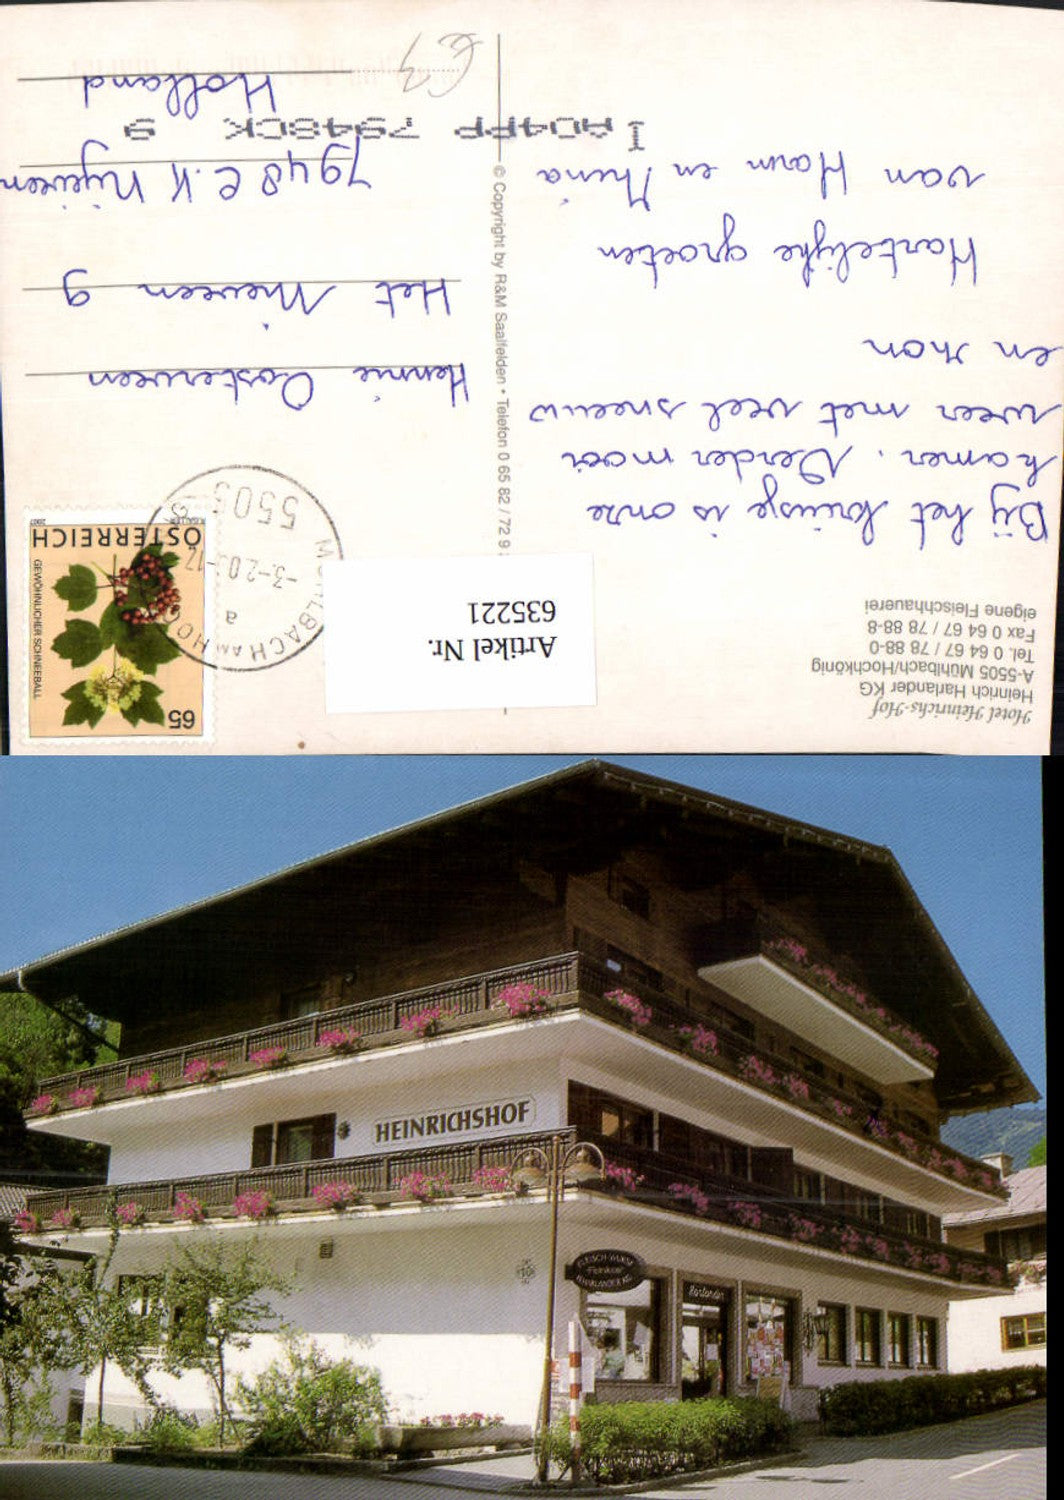 Hotel Heinrichs-Hof
Heinrich Harlander KG
A-5505 Mühlbach/Hochkönig
Tel. 0 64 67 / 78 88-0
Fax 0 64 67 / 78 88-8
eigene Fleischhauerei
Bij het kruisje is onze
kamer. Verder mooi
weer met veel sneeuw
en zon
Hartelijke groeten
van Harm en Mina
IAD4PP 7948CK 9
© Copyright by R&M Saalfelden • Telefon 0 65 82 / 72 9
65
GEWÖHNLICHER SCHNEEBALL
ÖSTERREICH
2007
MÜHLBACH AM HO
a
-3.-2.0
-12
5505
Artikel Nr.
635221
Hennie Oosterveen
Het Nieveen 9
7948 C.K Nijeveen
Holland
€3
HEINRICHSHOF
FLEISCH-WURST
HARLANDER KG
Harlander